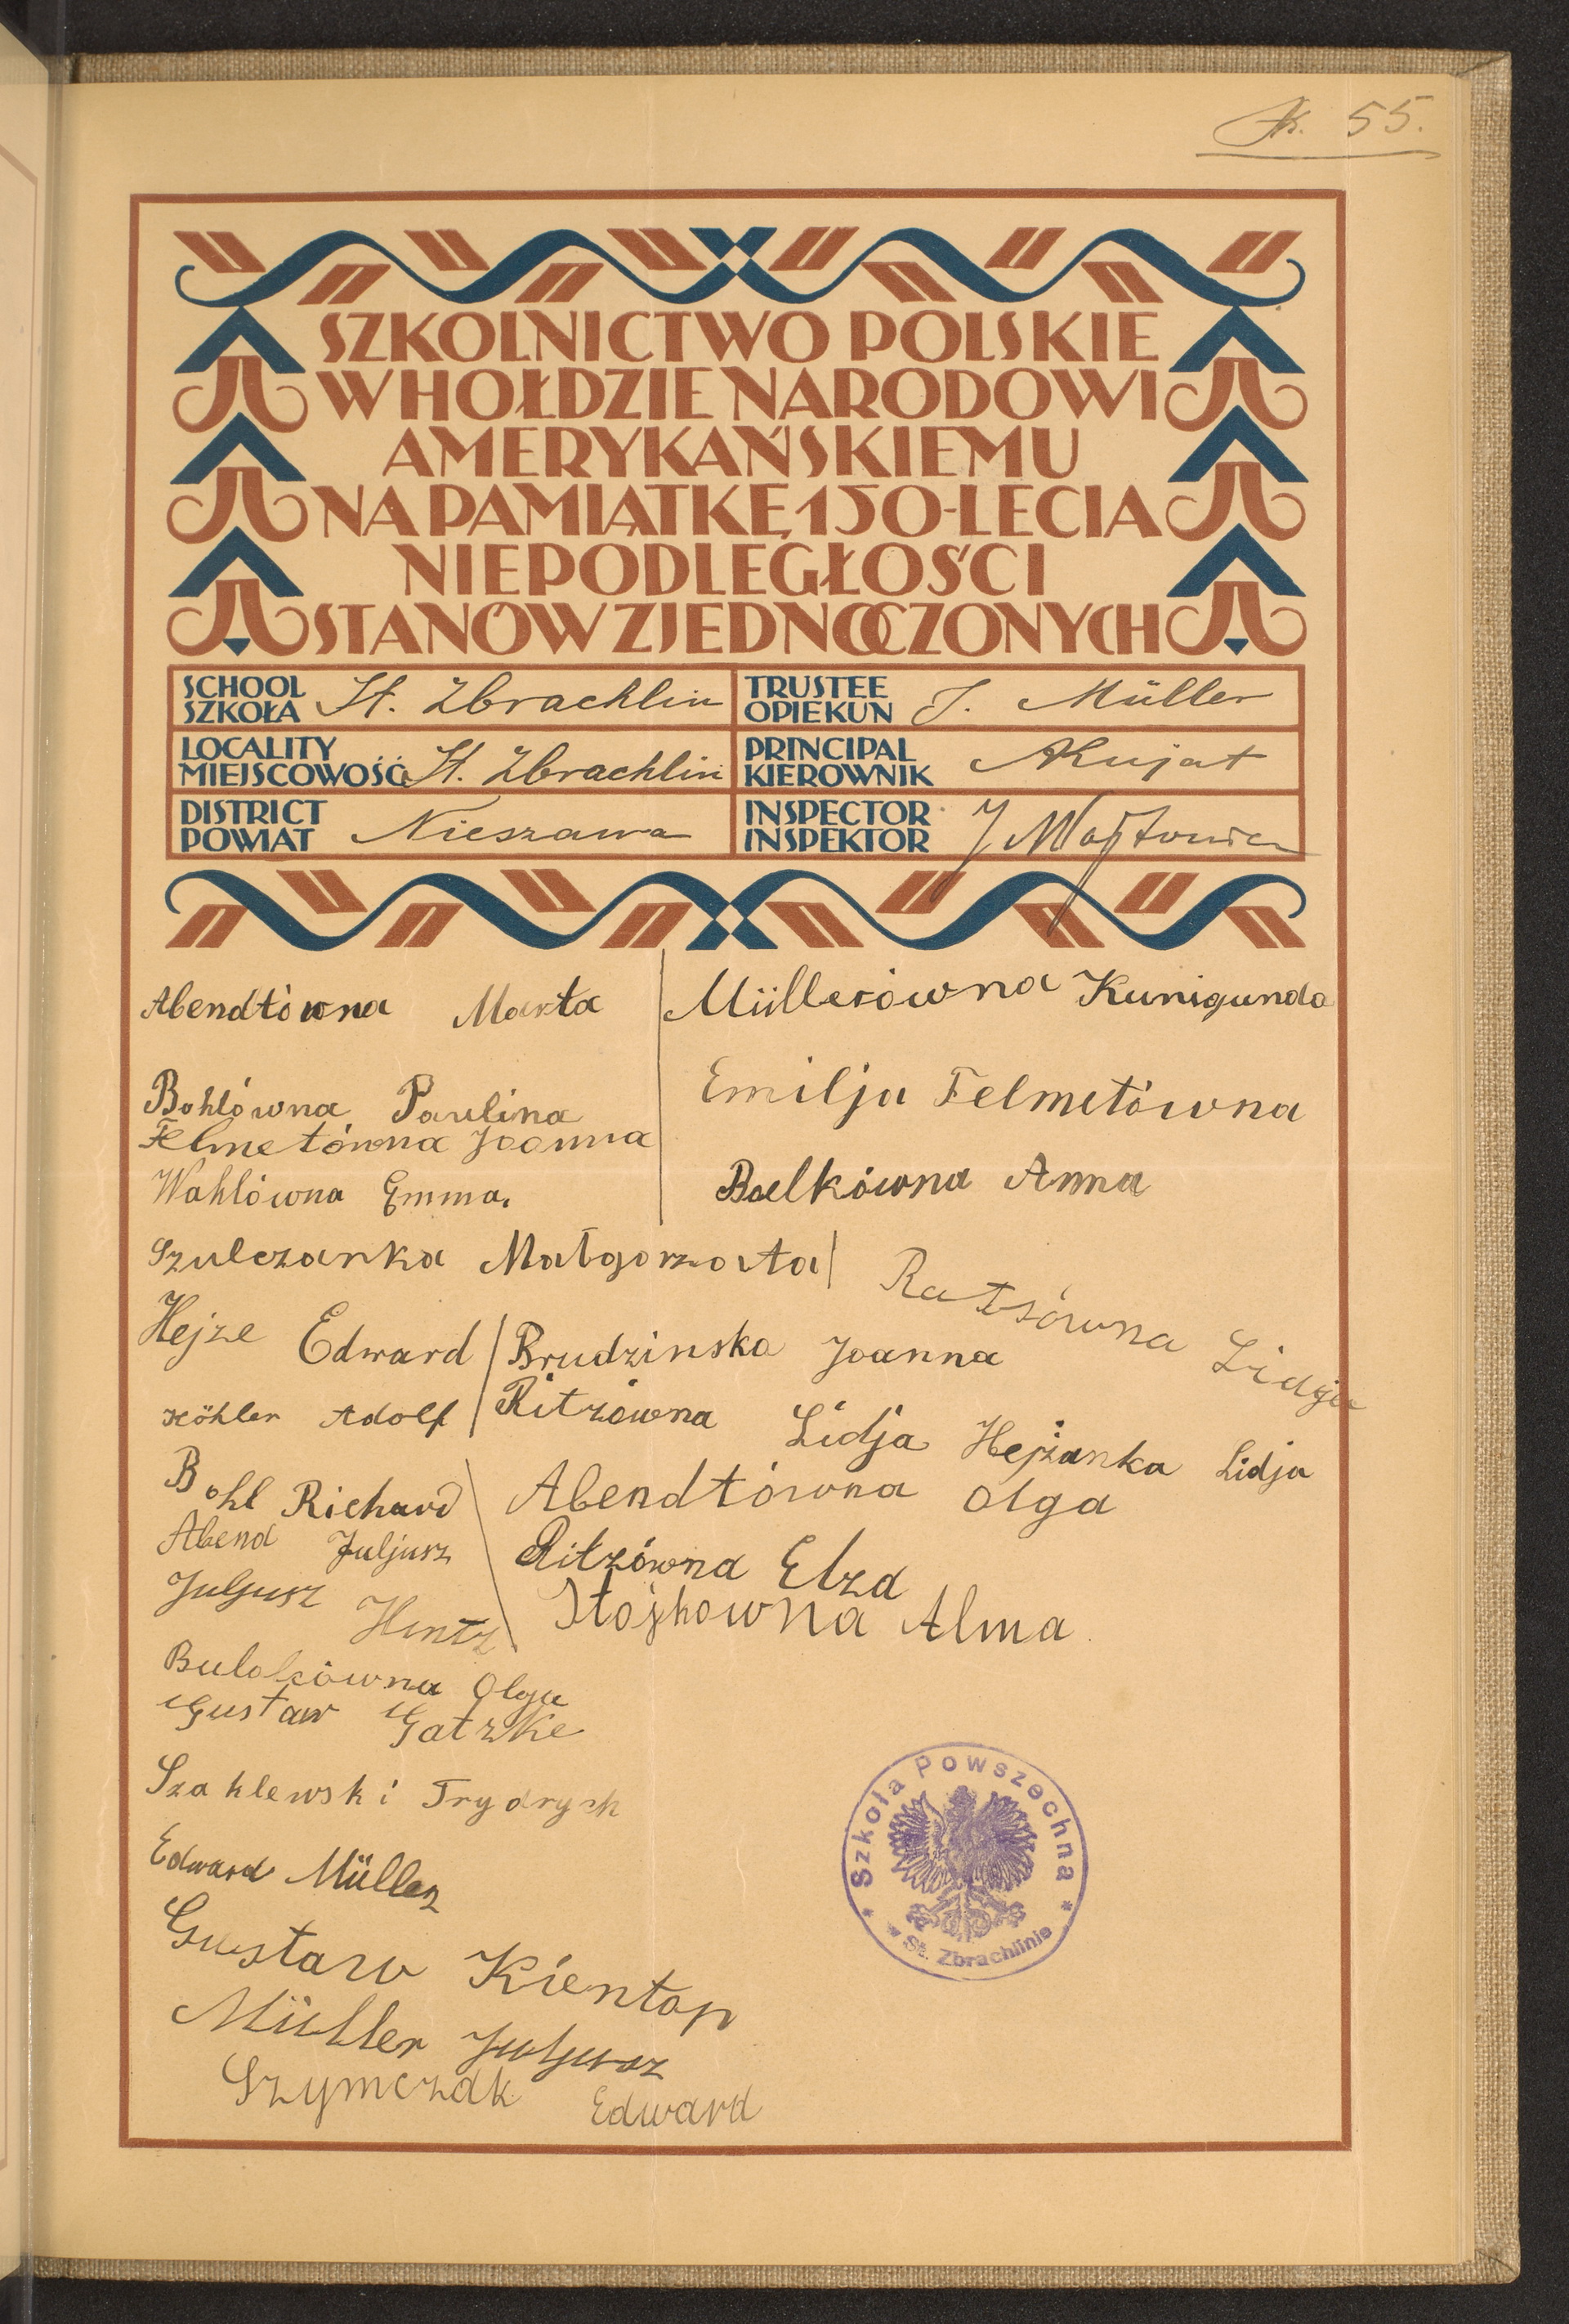 k. 55.
SZKOLNICTWO POLSKIE
W HOŁDZIE NARODOWI
AMERYKAŃSKIEMU
NA PAMIĄTKĘ 150-LECIA
NIEPODLEGŁOŚCI
STANÓW ZJEDNOCZONYCH
SCHOOL
SZKOŁA St. Zbrachlin
TRUSTEE
OPIEKUN J. Müller
LOCALITY
MIEJSCOWOŚĆ St. Zbrachlin
PRINCIPAL
KIEROWNIK AKujat
DISTRICT
POWIAT Nieszawa
INSPECTOR
INSPEKTOR J
Abendtówna Marta
Müllerówna Kunigunda
Bohlówna Paulina
Emilja Felmetówna
Felmetówna Joanna
Wahlówna Emma.
Baelkówna Anna
Szulczanka Małgorzata
Ratsówna Lidja
Hejze Edward
Brudzinska Joanna
Köhler Adolf
Ritzówna Lidja
Hejżanka Lidja
Bohl Richard
Abendtówna Olga
Abend Juljusz
Ritzówna Elza
Juljusz Hintz
Alma
Olga
Gustaw Gatzke
Szaklewski Frydrych
Edward Müller
Gustaw Kientop
Müller Juljusz
Szymczak Edward
* Szkoła Powszechna *
* St. Zbrachlinie